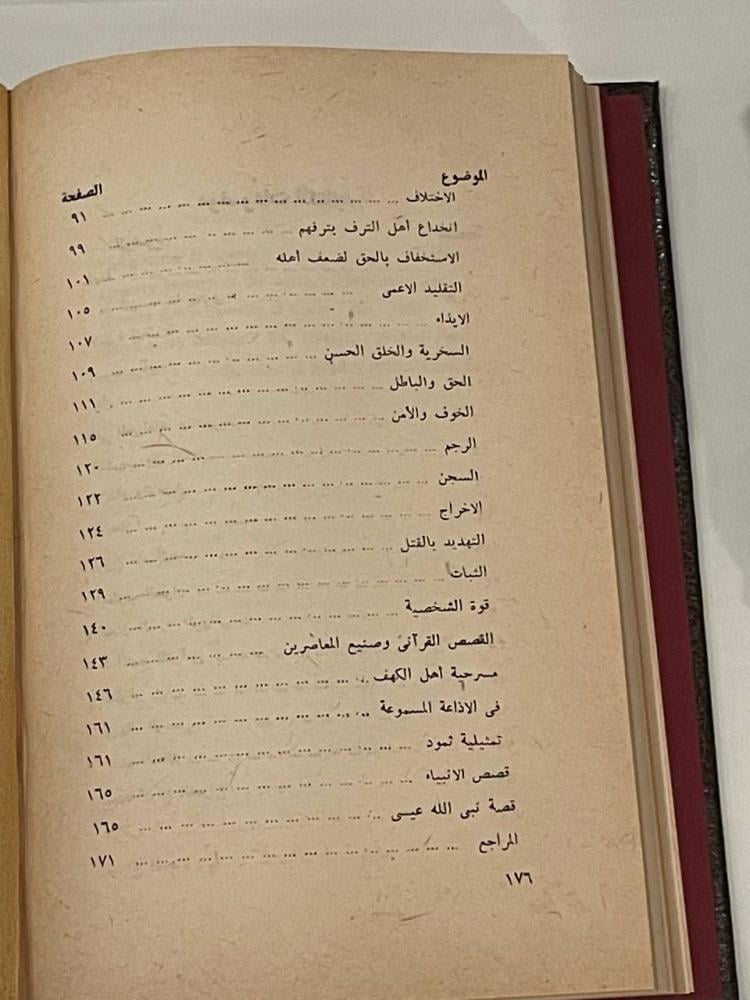 الموضوع الصفحة
الاختلاف ... ... ... ... ... ... ... ... ... ... ٩١
انخداع أهل الترف بترفهم ... ... ... ... ... ... ... ٩٩
الاستخفاف بالحق لضعف أهله ... ... ... ... ... ... ١٠١
التقليد الاعمى ... ... ... ... ... ... ... ... ... ١٠٥
الايذاء ... ... ... ... ... ... ... ... ... ... ١٠٧
السخرية والخلق الحسن ... ... ... ... ... ... ... ١٠٩
الحق والباطل ... ... ... ... ... ... ... ... ... ١١١
الخوف والأمن ... ... ... ... ... ... ... ... ... ١١٥
الرجم ... ... ... ... ... ... ... ... ... ... ١٢٠
السجن ... ... ... ... ... ... ... ... ... ... ١٢٢
الاخراج ... ... ... ... ... ... ... ... ... ... ١٢٤
التهديد بالقتل ... ... ... ... ... ... ... ... ... ١٢٦
الثبات ... ... ... ... ... ... ... ... ... ... ١٢٩
قوة الشخصية ... ... ... ... ... ... ... ... ... ١٤٠
القصص القرآنى وصنيع المعاصرين ... ... ... ... ... ١٤٣
مسرحية أهل الكهف ... ... ... ... ... ... ... ... ١٤٦
فى الاذاعة المسموعة ... ... ... ... ... ... ... ... ١٦١
تمثيلية ثمود ... ... ... ... ... ... ... ... ... ١٦١
قصص الانبياء ... ... ... ... ... ... ... ... ... ١٦٥
قصة نبى الله عيسى ... ... ... ... ... ... ... ... ١٦٥
المراجع ... ... ... ... ... ... ... ... ... ... ١٧١
١٧٦